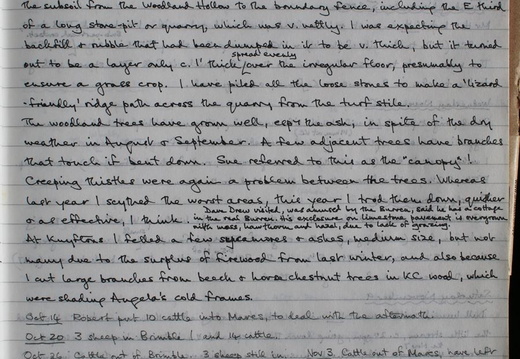 the subsoil from the Woodland Hollow to the boundary fence, including the E third
of a long stone pit or quarry, which was v. nettly. I was expecting the
backfill & rubble that had been dumped in it to be v. thick, but it turned
spread evenly
out to be a layer only c. 1' thick, over the irregular floor, presumably to
ensure a grass crop. I have piled all the loose stones to make a 'lizard
-friendly' ridge path across the quarry from the turf stile.
The woodland trees have grown well, esp the ash, in spite of the dry
weather in August & September. A few adjacent trees have branches
that touch if bent down. She referred to this as the "canopy"!
Creeping thistles were again a problem between the trees. Whereas
last year I scythed the worst areas, this year I trod them down, quicker
& as effective, I think.
Dave Drew visited, was amused by the Burren, said he has a cottage
in the real Burren. His exclosure on limestone pavement is overgrown
with moss, hawthorn and hazel, due to lack of grazing.
At Knyftons I felled a few sycamores & ashes, medium size, but not
many due to the surplus of firewood from last winter, and also because
I cut large branches from beech & horse chestnut trees in KC wood, which
were shading Angela's cold frames.
Oct 14 Robert put 10 cattle into Mares, to deal with the aftermath.
Oct 20 3 sheep in Brimble 1 and 14 cattle.
Oct 26 Cattle out of Brimble. 3 sheep still in. Nov 3. Cattle out of Mares, have left